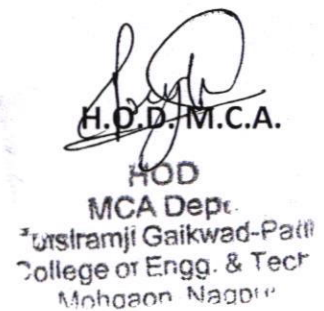 H.O.D. M.C.A.
HOD
MCA Dept.
Gaikwad-Patil
College of Engg. & Tech
Mohgaon Nagpur